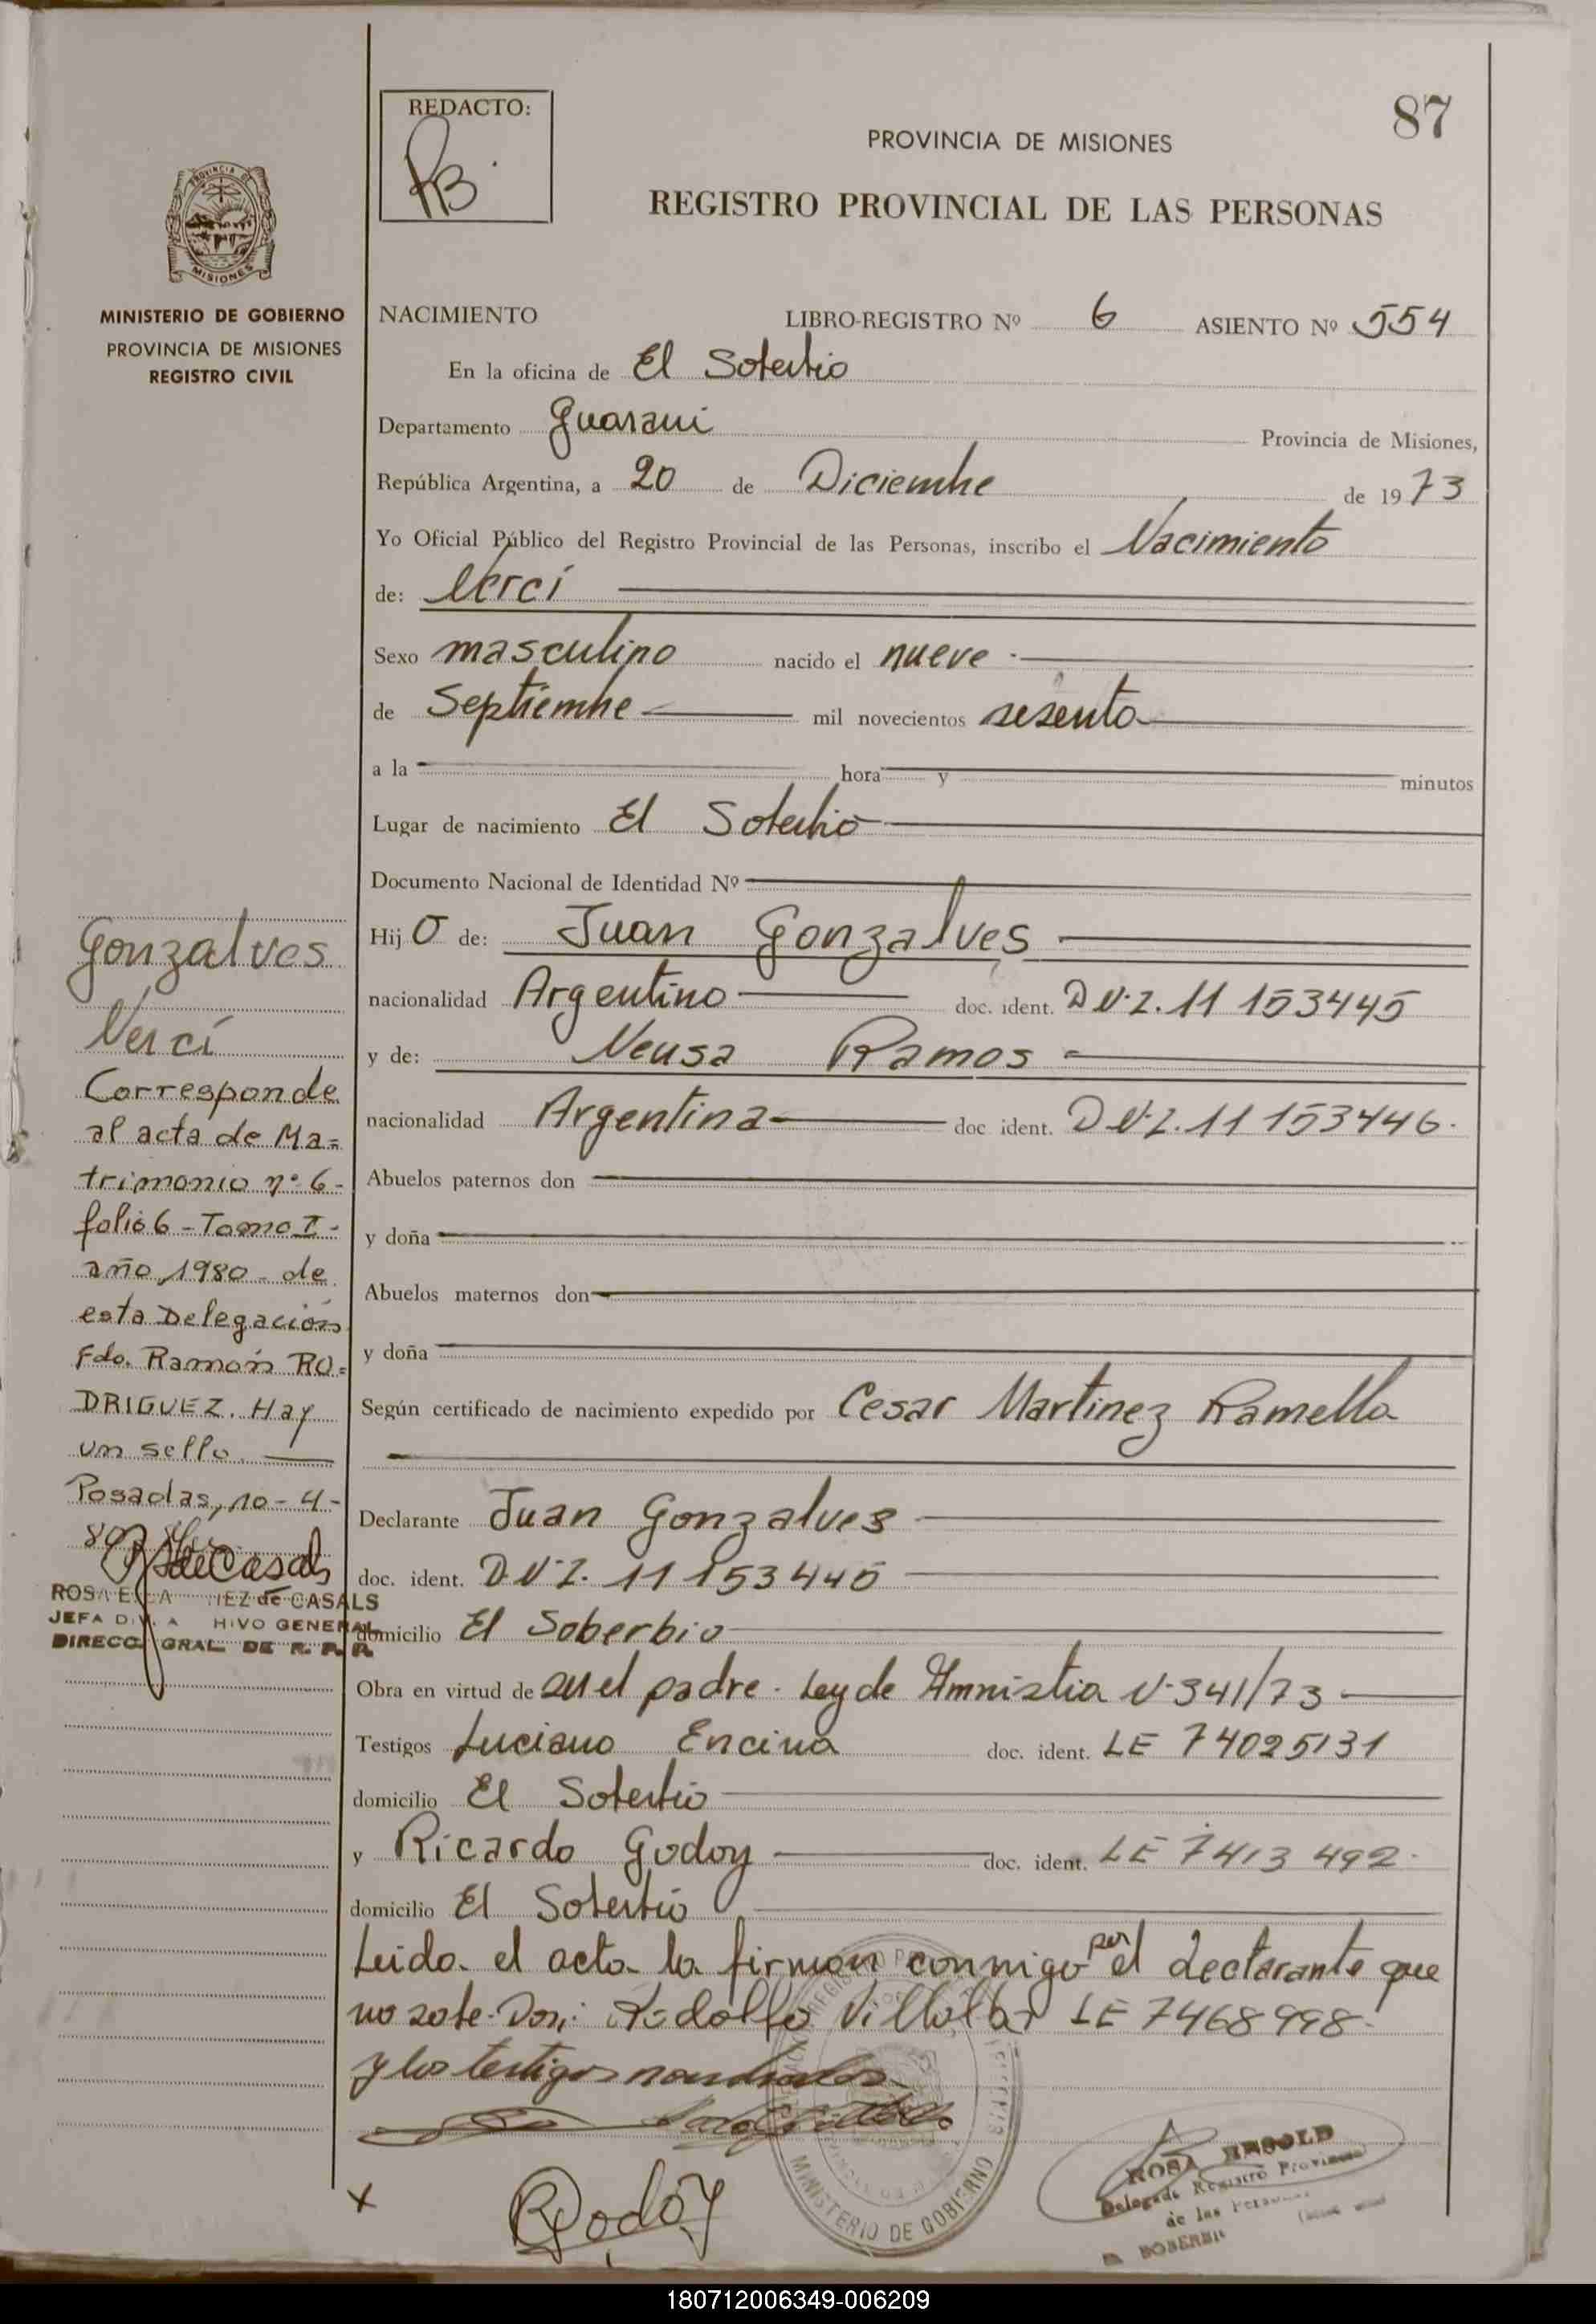 87
REDACTO:
RB.
PROVINCIA DE MISIONES
REGISTRO PROVINCIAL DE LAS PERSONAS
PROVINCIA DE
MISIONES
MINISTERIO DE GOBIERNO
PROVINCIA DE MISIONES
REGISTRO CIVIL
NACIMIENTO LIBRO-REGISTRO Nº 6 ASIENTO Nº 554
En la oficina de El Soberbio
Departamento Guarani Provincia de Misiones,
República Argentina, a 20 de Diciembre de 1973
Yo Oficial Público del Registro Provincial de las Personas, inscribo el Nacimiento
de: Nerci
Sexo masculino nacido el nueve
de Septiembre mil novecientos sesenta
a la hora y minutos
Lugar de nacimiento El Soberbio
Documento Nacional de Identidad Nº
Hijo de: Juan Gonzalves
nacionalidad Argentino doc. ident. D.N.I. 11 153445
y de: Neusa Ramos
nacionalidad Argentina doc ident. D.N.I. 11 153446.
Abuelos paternos don
y doña
Abuelos maternos don
y doña
Según certificado de nacimiento expedido por Cesar Martinez Ramella
Declarante Juan Gonzalves
doc. ident. D.N.I. 11 153445
domicilio El Soberbio
Obra en virtud de ser el padre. Ley de Amnistia N-341/73
Testigos Luciano Encina doc. ident. LE 74025131
domicilio El Soberbio
y Ricardo Godoy doc. ident. LE 7413492.
domicilio El Soberbio
Leida el acta la firman conmigo por el declarante que
no sabe. Don: Rodolfo Villalba LE 7468998.
y los testigos nombrados.
RGodoy
MINISTERIO DE GOBIERNO
ROSA
Delegado Registro Provincial
de las
SOBERBIO
Gonzalves
Nerci
Corresponde
al acta de Ma=
trimonio nº 6-
folio 6 - Tomo I-
año 1980 - de
esta Delegación
Fdo. Ramón RO=
DRIGUEZ. Hay
un sello.
Posadas, 10-4-
80
ROSA E. de CASALS
JEFA DIV. ARCHIVO GENERAL
DIRECC. GRAL DE R. P. P.
180712006349-006209